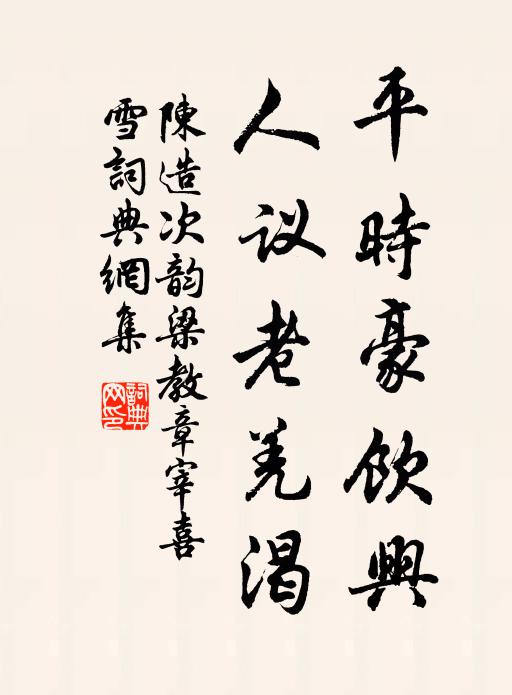 平時豪飲興
人议老羌渴
陳造次韵梁教章宰喜
雪詞典網集
詞典
网印